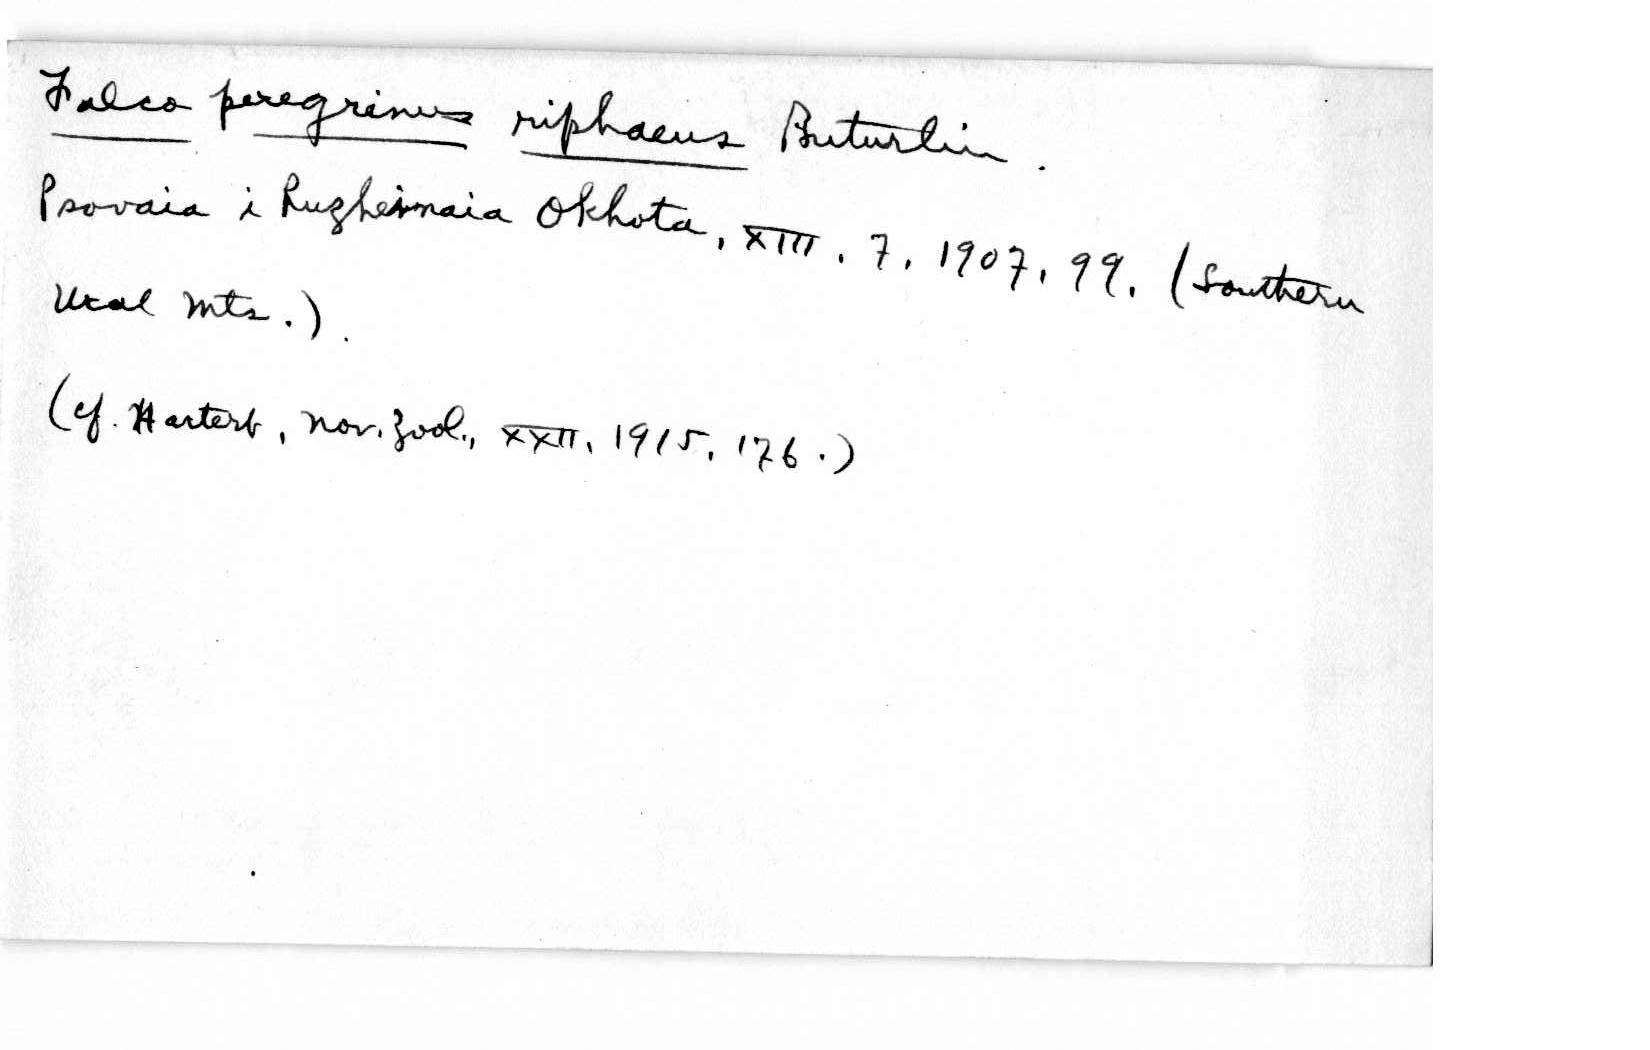 Falco peregrinus riphaeus Buturlin.
Psovaia i Ruzheinaia Okhota, XIII. 7. 1907. 99. (Southern
Ural Mts.).
(cf. Hartert, Nov. Zool., XXII. 1915. 176.)